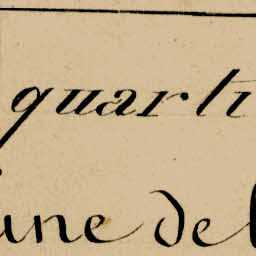 quarti
une de